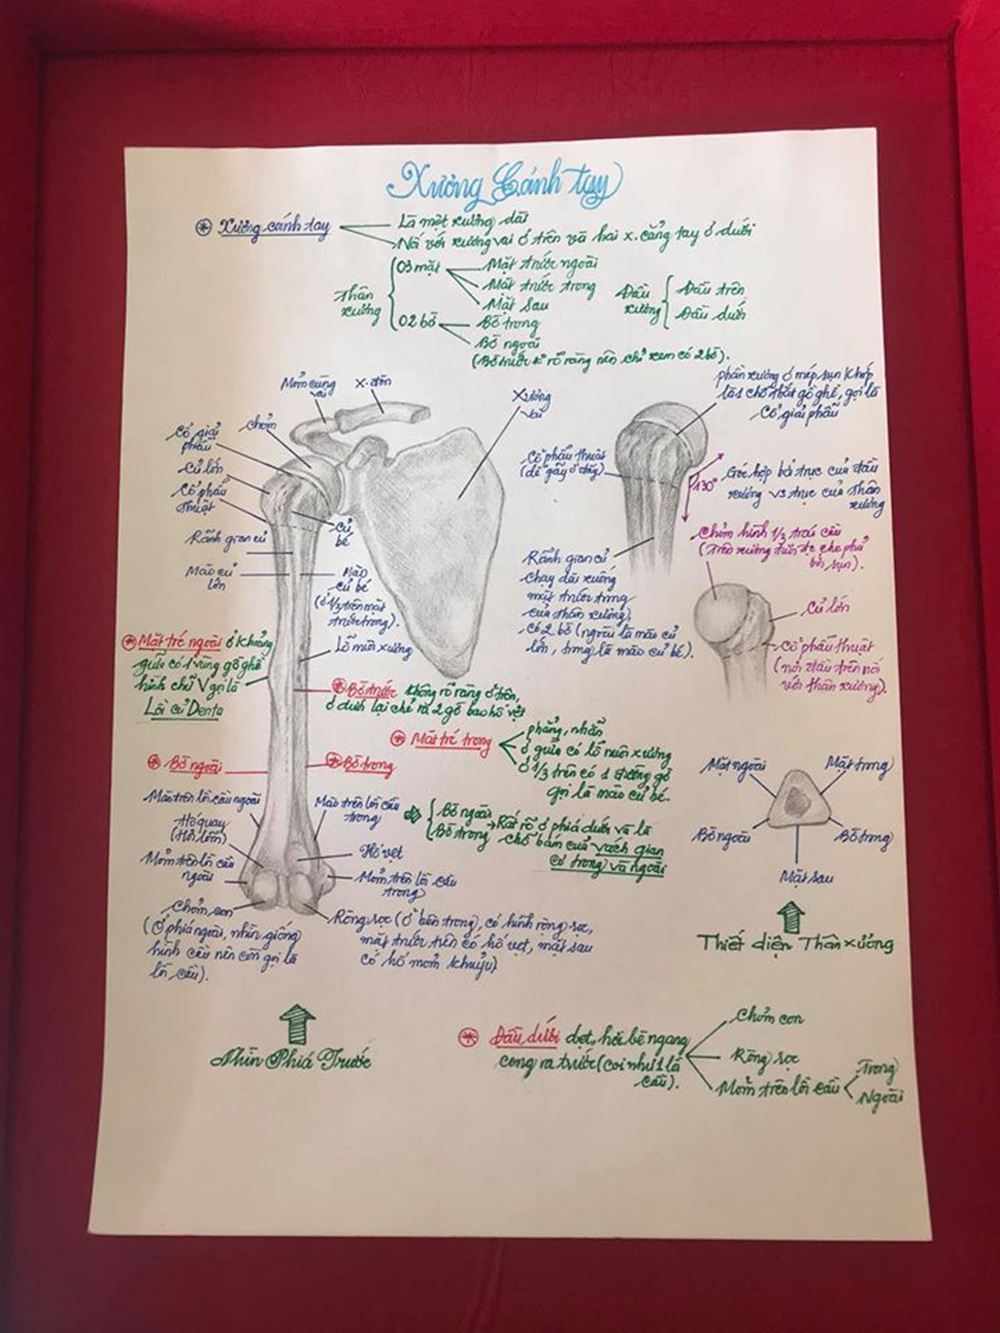 Xương Cánh tay
Xương cánh tay
Là một xương dài
Nối với xương vai ở trên và hai x. cẳng tay ở dưới
Thân
xương
03 mặt
Mặt trước ngoài
Mặt trước trong
Mặt sau
02 bờ
Bờ trong
Bờ ngoài
(Bờ trước k rõ ràng nên chỉ xem có 2 bờ).
Đầu
xương
Đầu trên
Đầu dưới
Mỏm cùng
vai
X. đòn
Xương
vai
Cổ giải
phẫu
chỏm
Củ lớn
Cổ phẫu
thuật
Rãnh gian củ
Mào củ
lớn
Củ
bé
Mào
củ bé
(ở 1/3 trên mặt
trước trong).
Lỗ nuôi xương
phần xương ở mép sụn khớp
là 1 chỗ thắt gồ ghề, gọi là
Cổ giải phẫu
Cổ phẫu thuật
(dễ gãy ở đây)
130°
Góc hợp bởi trục của đầu
xương vs trục của thân
xương
Rãnh gian củ
chạy dài xuống
mặt trước trong
của thân xương,
có 2 bờ (ngoài là mào củ
lớn, trong là mào củ bé).
Chỏm hình 1/3 trái cầu
(Trên xương tươi đc che phủ
bởi sụn).
Củ lớn
Cổ phẫu thuật
(nối đầu trên nối
với thân xương).
Mặt trc ngoài ở khoảng
giữa có 1 vùng gồ ghề
hình chữ V gọi là
Lồi củ Denta
Bờ trước không rõ ràng ở trên,
ở dưới lại chẻ ra 2 gờ bao hố vẹt
Mặt trc trong
phẳng, nhẵn
ở giữa có lỗ nuôi xương
ở 1/3 trên có 1 đường gồ
gọi là mào củ bé.
Bờ ngoài
Bờ trong
Bờ ngoài
Bờ trong
Rất rõ ở phía dưới và là
chỗ bám của vách gian
cơ trong và ngoài
Mào trên lồi cầu ngoài
Hố quay
(Hố lõm)
Mỏm trên lồi cầu
ngoài
Chỏm con
(Ở phía ngoài, nhìn giống
hình cầu nên còn gọi là
lồi cầu).
Mào trên lồi cầu
trong
Hố vẹt
Mỏm trên lồi cầu
trong
Ròng rọc (ở bên trong), có hình ròng rọc,
mặt trước trên có hố vẹt, mặt sau
có hố mỏm khuỷu)
Mặt ngoài
Mặt trong
Bờ ngoài
Bờ trong
Mặt sau
Thiết diện Thân xương
Nhìn Phía Trước
Đầu dưới dẹt, hơi bè ngang
cong ra trước (coi như 1 lồi
cầu).
Chỏm con
Ròng rọc
Mỏm trên lồi cầu
Trong
Ngoài